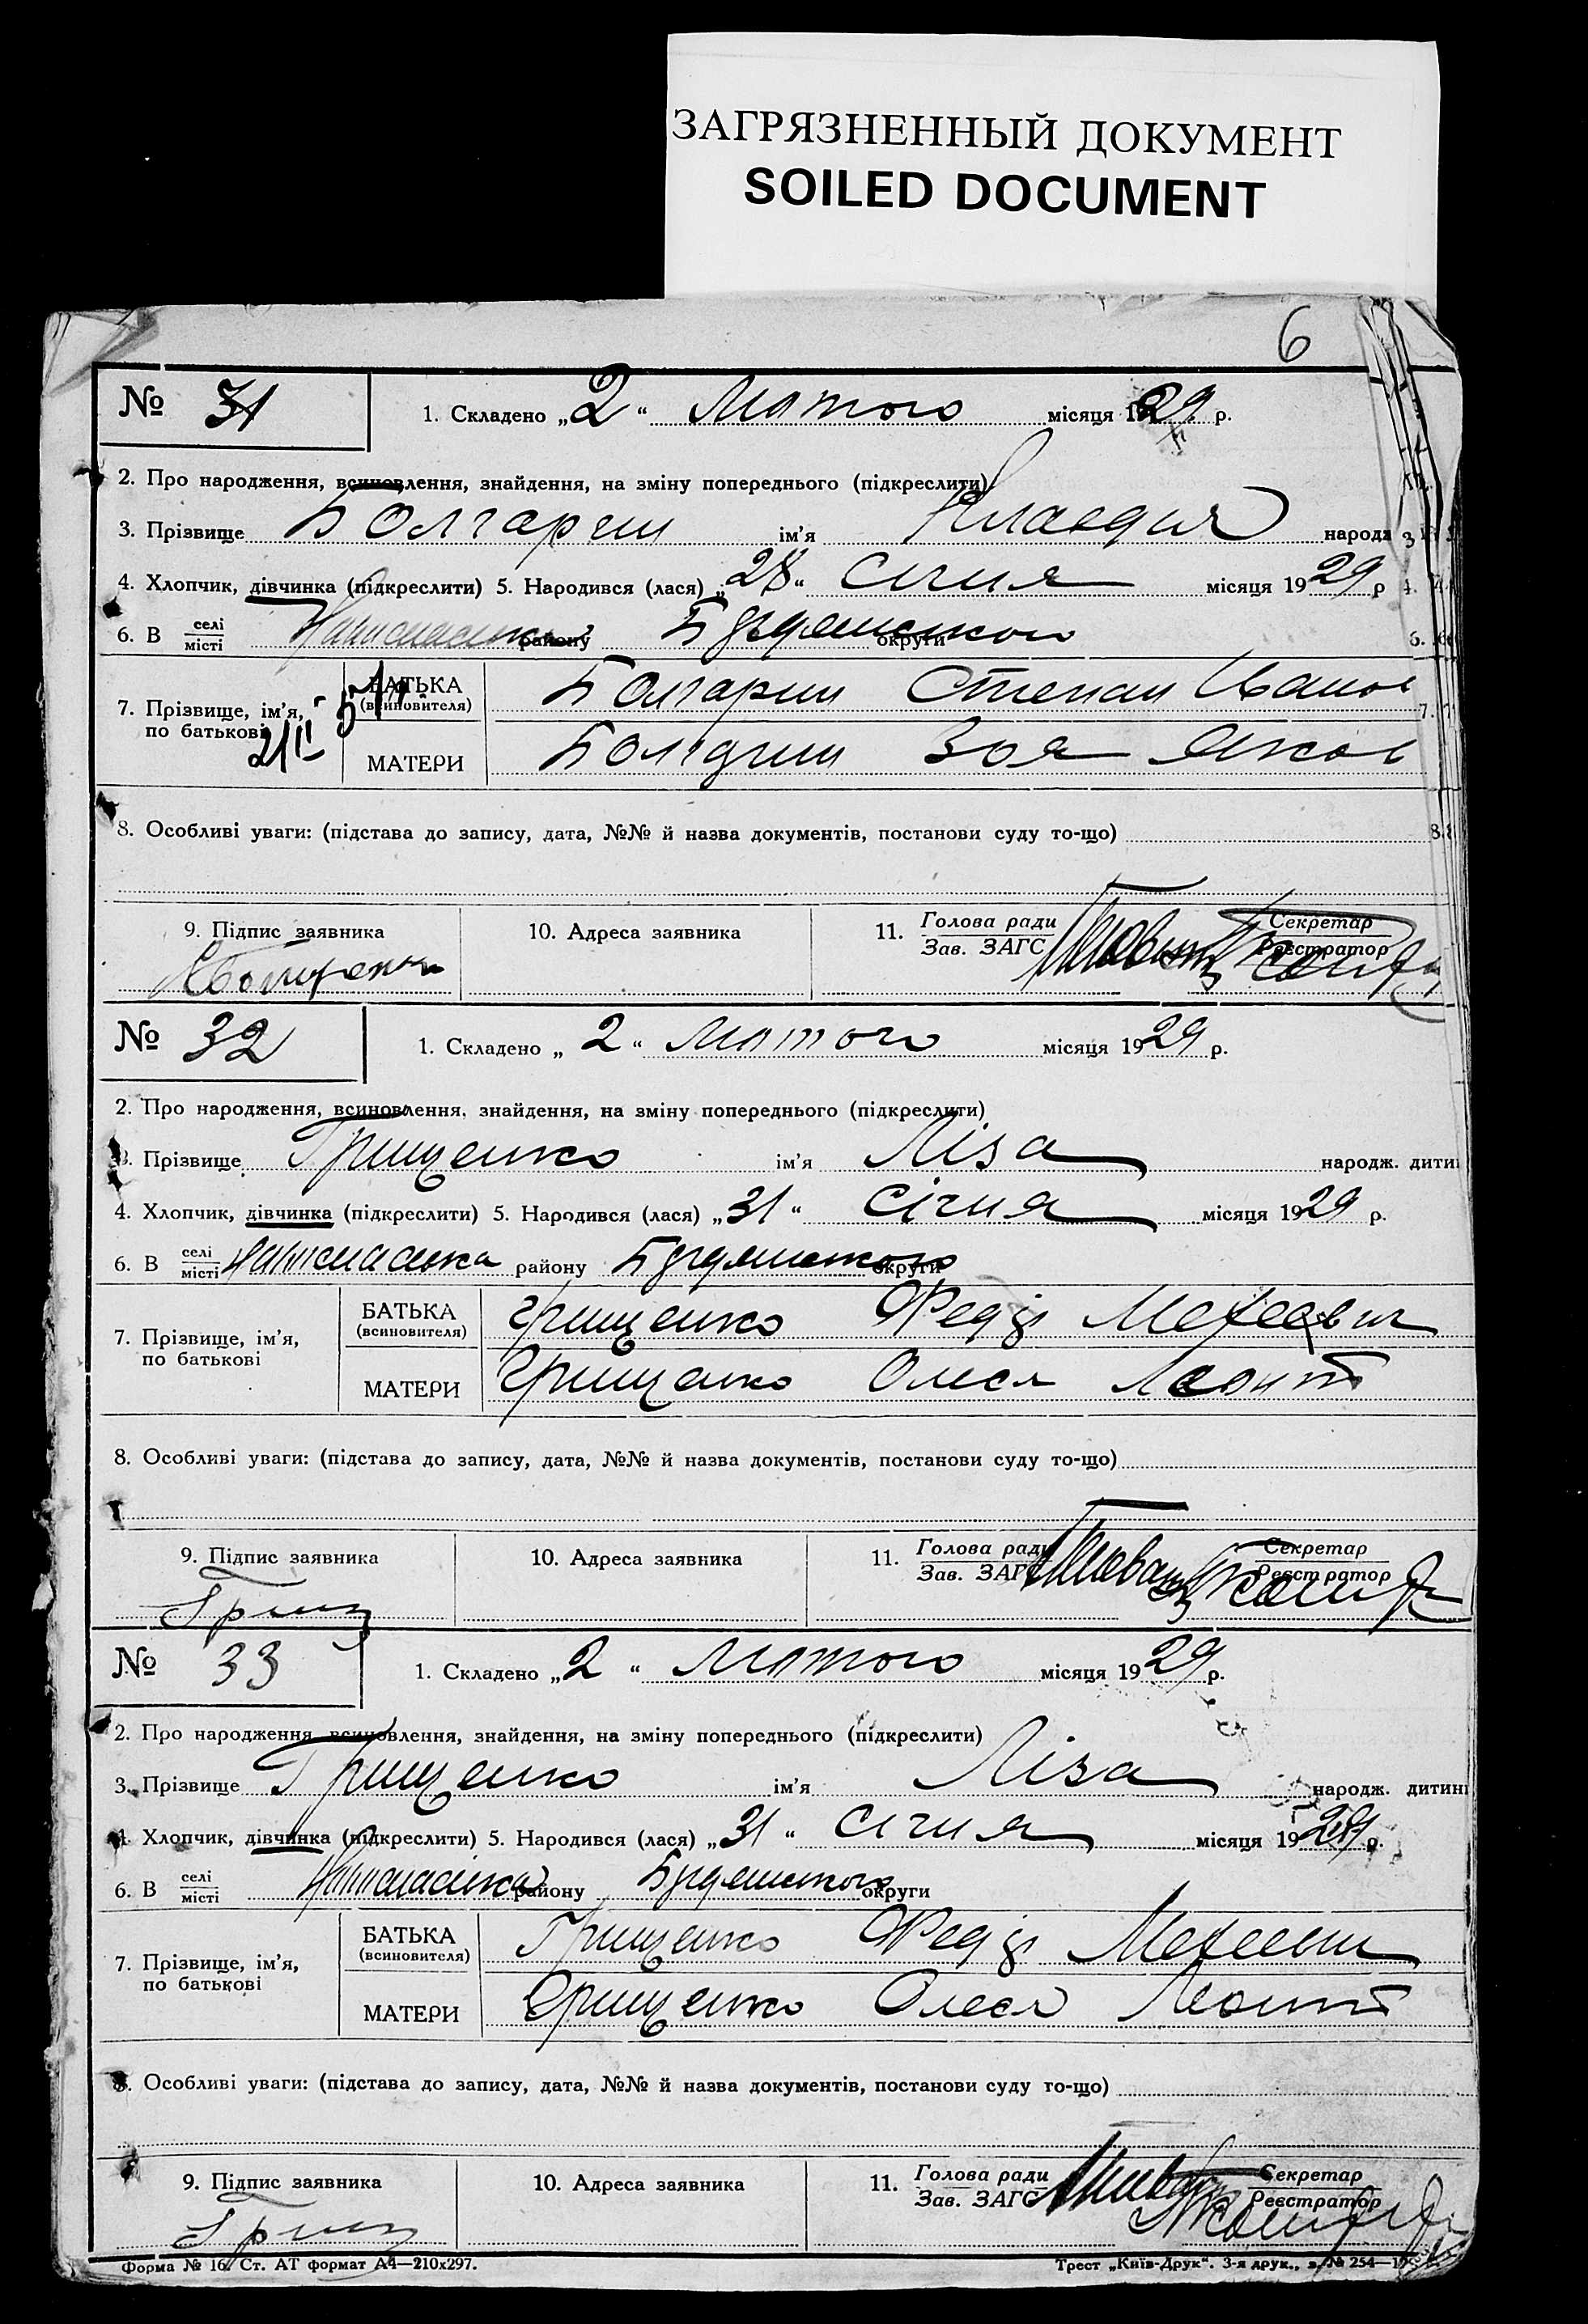 ЗАГРЯЗНЕННЫЙ ДОКУМЕНТ
SOILED DOCUMENT
6
№ 31
1. Складено „2“ Лютого місяця 1929 р.
2. Про народження, всиновлення, знайдення, на зміну попереднього (підкреслити)
3. Прізвище Болгарин ім'я Клавдия народж
4. Хлопчик, дівчинка (підкреслити) 5. Народився (лася) „28“ Січня місяця 1929 р
6. В селі місті району округи
7. Прізвище, ім'я, по батькові
БАТЬКА (всиновителя) Болгарин Степан Иванов
МАТЕРИ Зоя Яков
8. Особливі уваги: (підстава до запису, дата, №№ й назва документів, постанови суду то-що)
9. Підпис заявника
10. Адреса заявника
11. Голова ради Зав. ЗАГС Секретар Реєстратор
№ 32
1. Складено „2“ Лютого місяця 1929 р.
2. Про народження, всиновлення, знайдення, на зміну попереднього (підкреслити)
3. Прізвище Грищенко ім'я Ліза народж. дитин
4. Хлопчик, дівчинка (підкреслити) 5. Народився (лася) „31“ Січня місяця 1929 р.
6. В селі місті району округи
7. Прізвище, ім'я, по батькові
БАТЬКА (всиновителя) Грищенко Федір
МАТЕРИ Грищенко Олеся Леонт
8. Особливі уваги: (підстава до запису, дата, №№ й назва документів, постанови суду то-що)
9. Підпис заявника Грищ
10. Адреса заявника
11. Голова ради Зав. ЗАГС Секретар Реєстратор
№ 33
1. Складено „2“ Лютого місяця 1929 р.
2. Про народження, всиновлення, знайдення, на зміну попереднього (підкреслити)
3. Прізвище Грищенко ім'я Ліза народж. дитин
4. Хлопчик, дівчинка (підкреслити) 5. Народився (лася) „31“ Січня місяця 1929 р.
6. В селі місті району округи
7. Прізвище, ім'я, по батькові
БАТЬКА (всиновителя) Грищенко Федір
МАТЕРИ Грищенко Олеся Леонт
8. Особливі уваги: (підстава до запису, дата, №№ й назва документів, постанови суду то-що)
9. Підпис заявника Грищ
10. Адреса заявника
11. Голова ради Зав. ЗАГС Секретар Реєстратор
Форма № 16. Ст. АТ формат А4—210х297.
Трест „Київ-Друк“. 3-я друк., з. № 254—